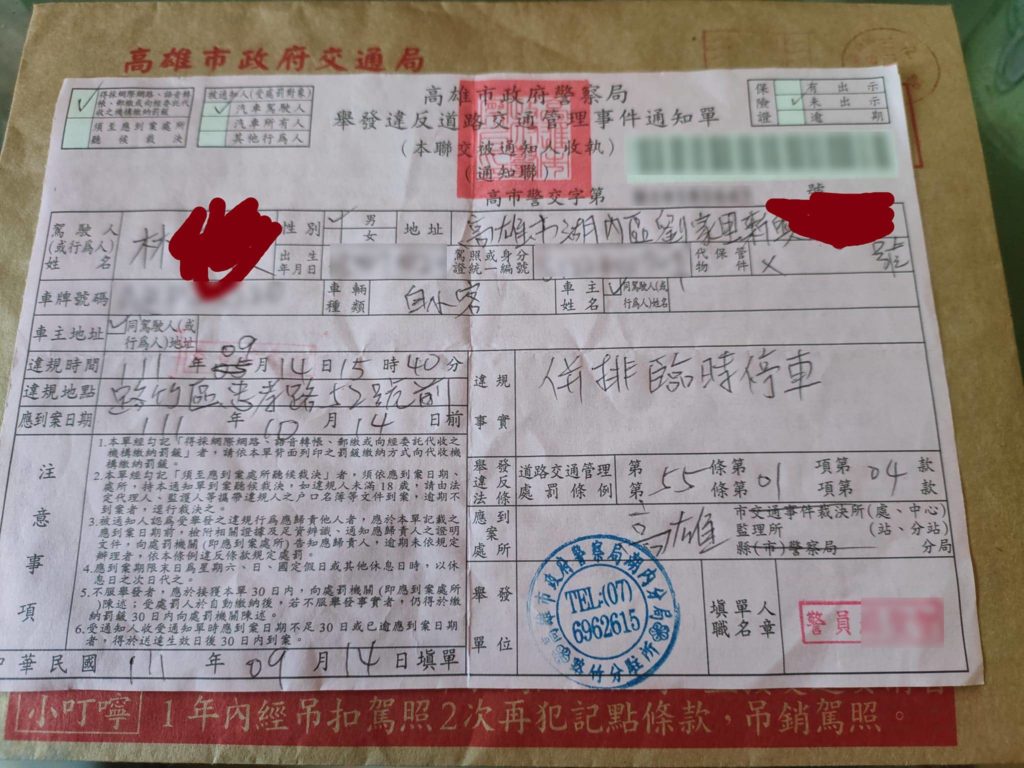 高雄市政府交通局
得採網際網路、語音轉帳、郵繳或向經委託代收之機構繳納罰鍰
須至應到案處所聽候裁決
被通知人(受處罰對象)
汽車駕駛人
汽車所有人
其他行為人
高雄市政府警察局
舉發違反道路交通管理事件通知單
(本聯交被通知人收執)
(通知聯)
高市警交字第 號
保險證
有出示
未出示
逾期
駕駛人(或行為人)姓名 林 性別 男 女 地址 高雄市湖內區劉家里 號
出生年月日 駕照或身分證統一編號 代保管物件 ×
車牌號碼 車輛種類 自小客 車主姓名 同駕駛人(或行為人)姓名
車主地址 同駕駛人(或行為人)地址
違規時間 111年09月14日15時40分
違規地點 路竹區忠孝路52號前
應到案日期 111年10月14日前
違規事實 併排臨時停車
注意事項
1.本單經勾記「得採網際網路、語音轉帳、郵繳或向經委託代收之
機構繳納罰鍰」者,請依本單背面列印之罰鍰繳納方式向代收機
構繳納罰鍰。
2.本單經勾記「須至應到案處所聽候裁決」者,須依應到案日期、
處所,持本通知單到案聽候裁決,如違規人未滿18歲,請由法
定代理人、監護人等攜帶違規人之戶口名簿等文件到案,逾期不
到案者,逕行裁決之。
3.被通知人認為受舉發之違規行為應歸責他人者,應於本單記載之
應到案日期前,檢附相關證據及足資辨識、通知應歸責人之證明
文件,向處罰機關(即應到案處所)告知應歸責人,逾期未依規定
辦理者,依本條例違反條款規定處罰。
4.應到案期限末日為星期六、日、國定假日或其他休息日時,以休
息日之次日代之。
5.不服舉發者,應於接獲本單30日內,向處罰機關(即應到案處所)
陳述;受處罰人於自動繳納後,若不服舉發事實者,仍得於繳
納罰鍰30日內向處罰機關陳述。
6.受通知人收受通知單時應到案日期不足30日或已逾應到案日期
者,得於送達生效日後30日內到案。
舉發違反法條 道路交通管理處罰條例 第55條第01項第04款
第 條第 項第 款
應到案處所 高雄 市交通事件裁決所(處、中心)
監理所 (站、分站)
縣(市)警察局 分局
舉發單位
高雄市政府警察局湖內分局
TEL:(07)
6962615
路竹分駐所
填單人職名章
警員
中華民國 111年09月14日填單
小叮嚀
1年內經吊扣駕照2次再犯記點條款,吊銷駕照。